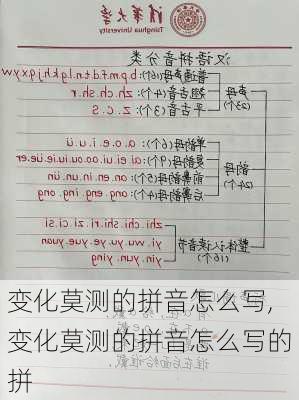 清华大学
Tsinghua University
汉语拼音分类
普通声母(16个) b.p.m.f.d.t.n.l.g.k.h.j.q.x.y.w
声母 翘舌音(4个): zh.ch.sh.r
(23个) 平舌音(3个): z.c.s
单韵母(6个): a.o.e.i.u.ü
韵母 复韵母(9个): ai.ei.ui.ao.ou.iu.ie.üe.er
(24个) 前鼻韵母(5个): an.en.in.un.ün
后鼻韵母(4个): ang.eng.ing.ong
zhi.chi.shi.ri.zi.ci.si
整体认读音节 yi.wu.yu.ye.yue.yuan
(16个) yin.yun.ying
变化莫测的拼音怎么写,
变化莫测的拼音怎么写的
拼